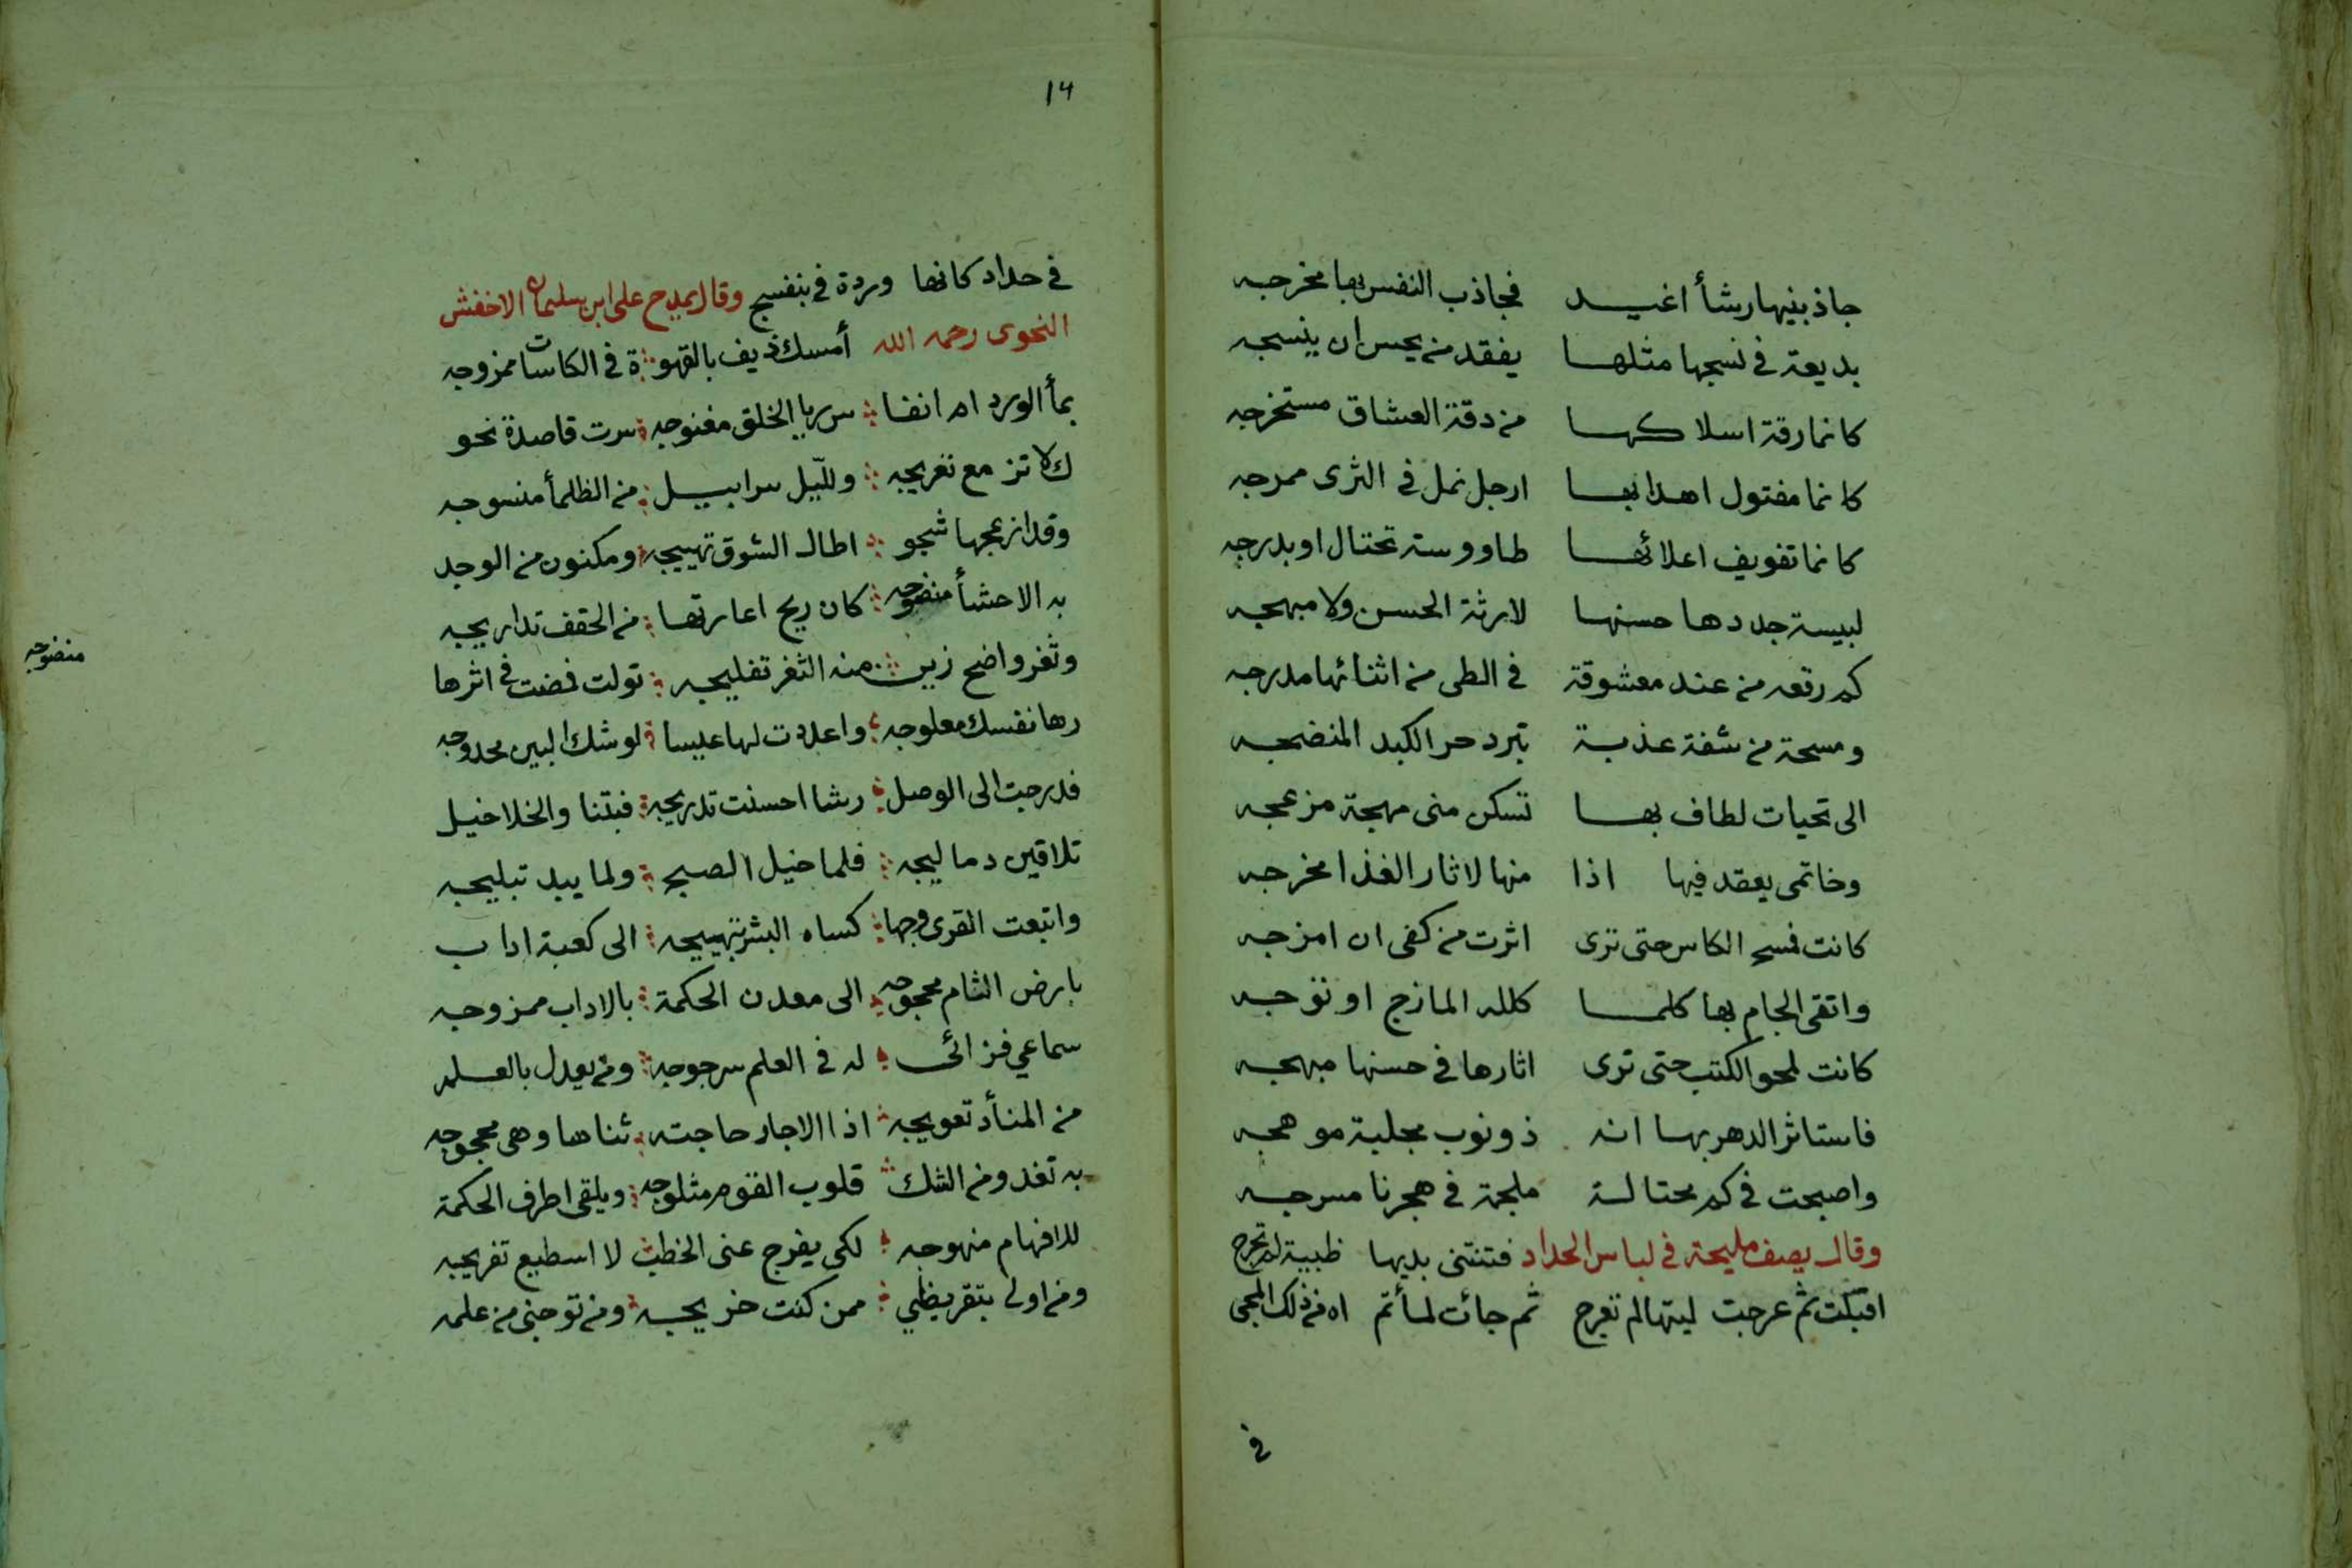 جاذبنيها رشأ اغيد فجاذب النفس بها مخرجه
بديعة في نسجها مثلها يفقد من يحسن ان ينسجه
كانما رقة اسلاكها من دقة العشاق مستخرجه
كانما مفتول اهدابها ارجل نمل في الثرى ممرجه
كانما تفويف اعلائها طاووسة تختال او بدرجه
لبيسة جددها حسنها لا رثة الحسن ولا مبهجه
كم رقعه من عند معشوقة في الطى من اثنائها مدرجه
ومسحة من شفة عذبة تبرد حر الكبد المنضجه
الى تحيات لطاف بها تسكن منى مهجة مزعجه
وخاتمى يعقد فيها اذا منها لاثار الغذا مخرجه
كانت فسح الكاس حتى ترى اثرت من كفى ان امزجه
واتقى الجام بها كلما كلله المازج او توجه
كانت لمحو الكتب حتى ترى اثارها في حسنها مبهجه
فاستاثر الدهر بها انه ذو نوب مجلية موهجه
واصبحت في كم محتالة ملجمة في هجرنا مسرجه
وقال يصف مليحة في لباس الحداد فتنتنى بديها ظبية لم تحرج
اقبلت ثم عرجت ليتها لم تعرج ثم جائت لمأتم اه من ذلك المجى
في
١٤
في حداد كانها وردة في بنفسج وقال يمدح على ابن سليمان الاخفش
النحوى رحمه الله أمسك ذيف بالقهوة في الكاسات ممزوجه
بمأ الورد ام انفاس ريا الخلق مغنوجه سرت قاصدة نحو
ك لا تزمع تغريجه ولليل سرابيل من الظلمأ منسوجه
وقد ازعجها شجو اطال الشوق تهييجه ومكنون من الوجد
به الاحشأ منضوجه كان ريح اعارتها من الحقف تداريجه
وثغر واضح زين منه الثغر تفليجه تولت فمضت في اثرها
رها نفسك معلوجه واعددت لها عيسا لوشك البين محدوجه
فدرجت الى الوصل رشا احسنت تدريجه فبتنا والخلاخيل
تلاقين دماليجه فلما خيل الصبح ولما يبد تبليجه
واتبعت القرى وجها كساه البشر تهييجه الى كعبة اداب
بارض الشام محجوجه الى معدن الحكمة بالاداب ممزوجه
سماعي فزائى له في العلم سرجوجه ومن يعدل بالعلم
من المنأد تعويجه اذا الاجار حاجته ثناها وهى محجوجه
به تغدو من الشك قلوب القوم مثلوجه ويلقى اطرف الحكمة
للافهام منهوجه لكى يفرج عنى الخطب لا اسطيع تفريجه
ومن اولى بتقريظي ممن كنت خريجه ومن توجنى من علمه
منضوجه